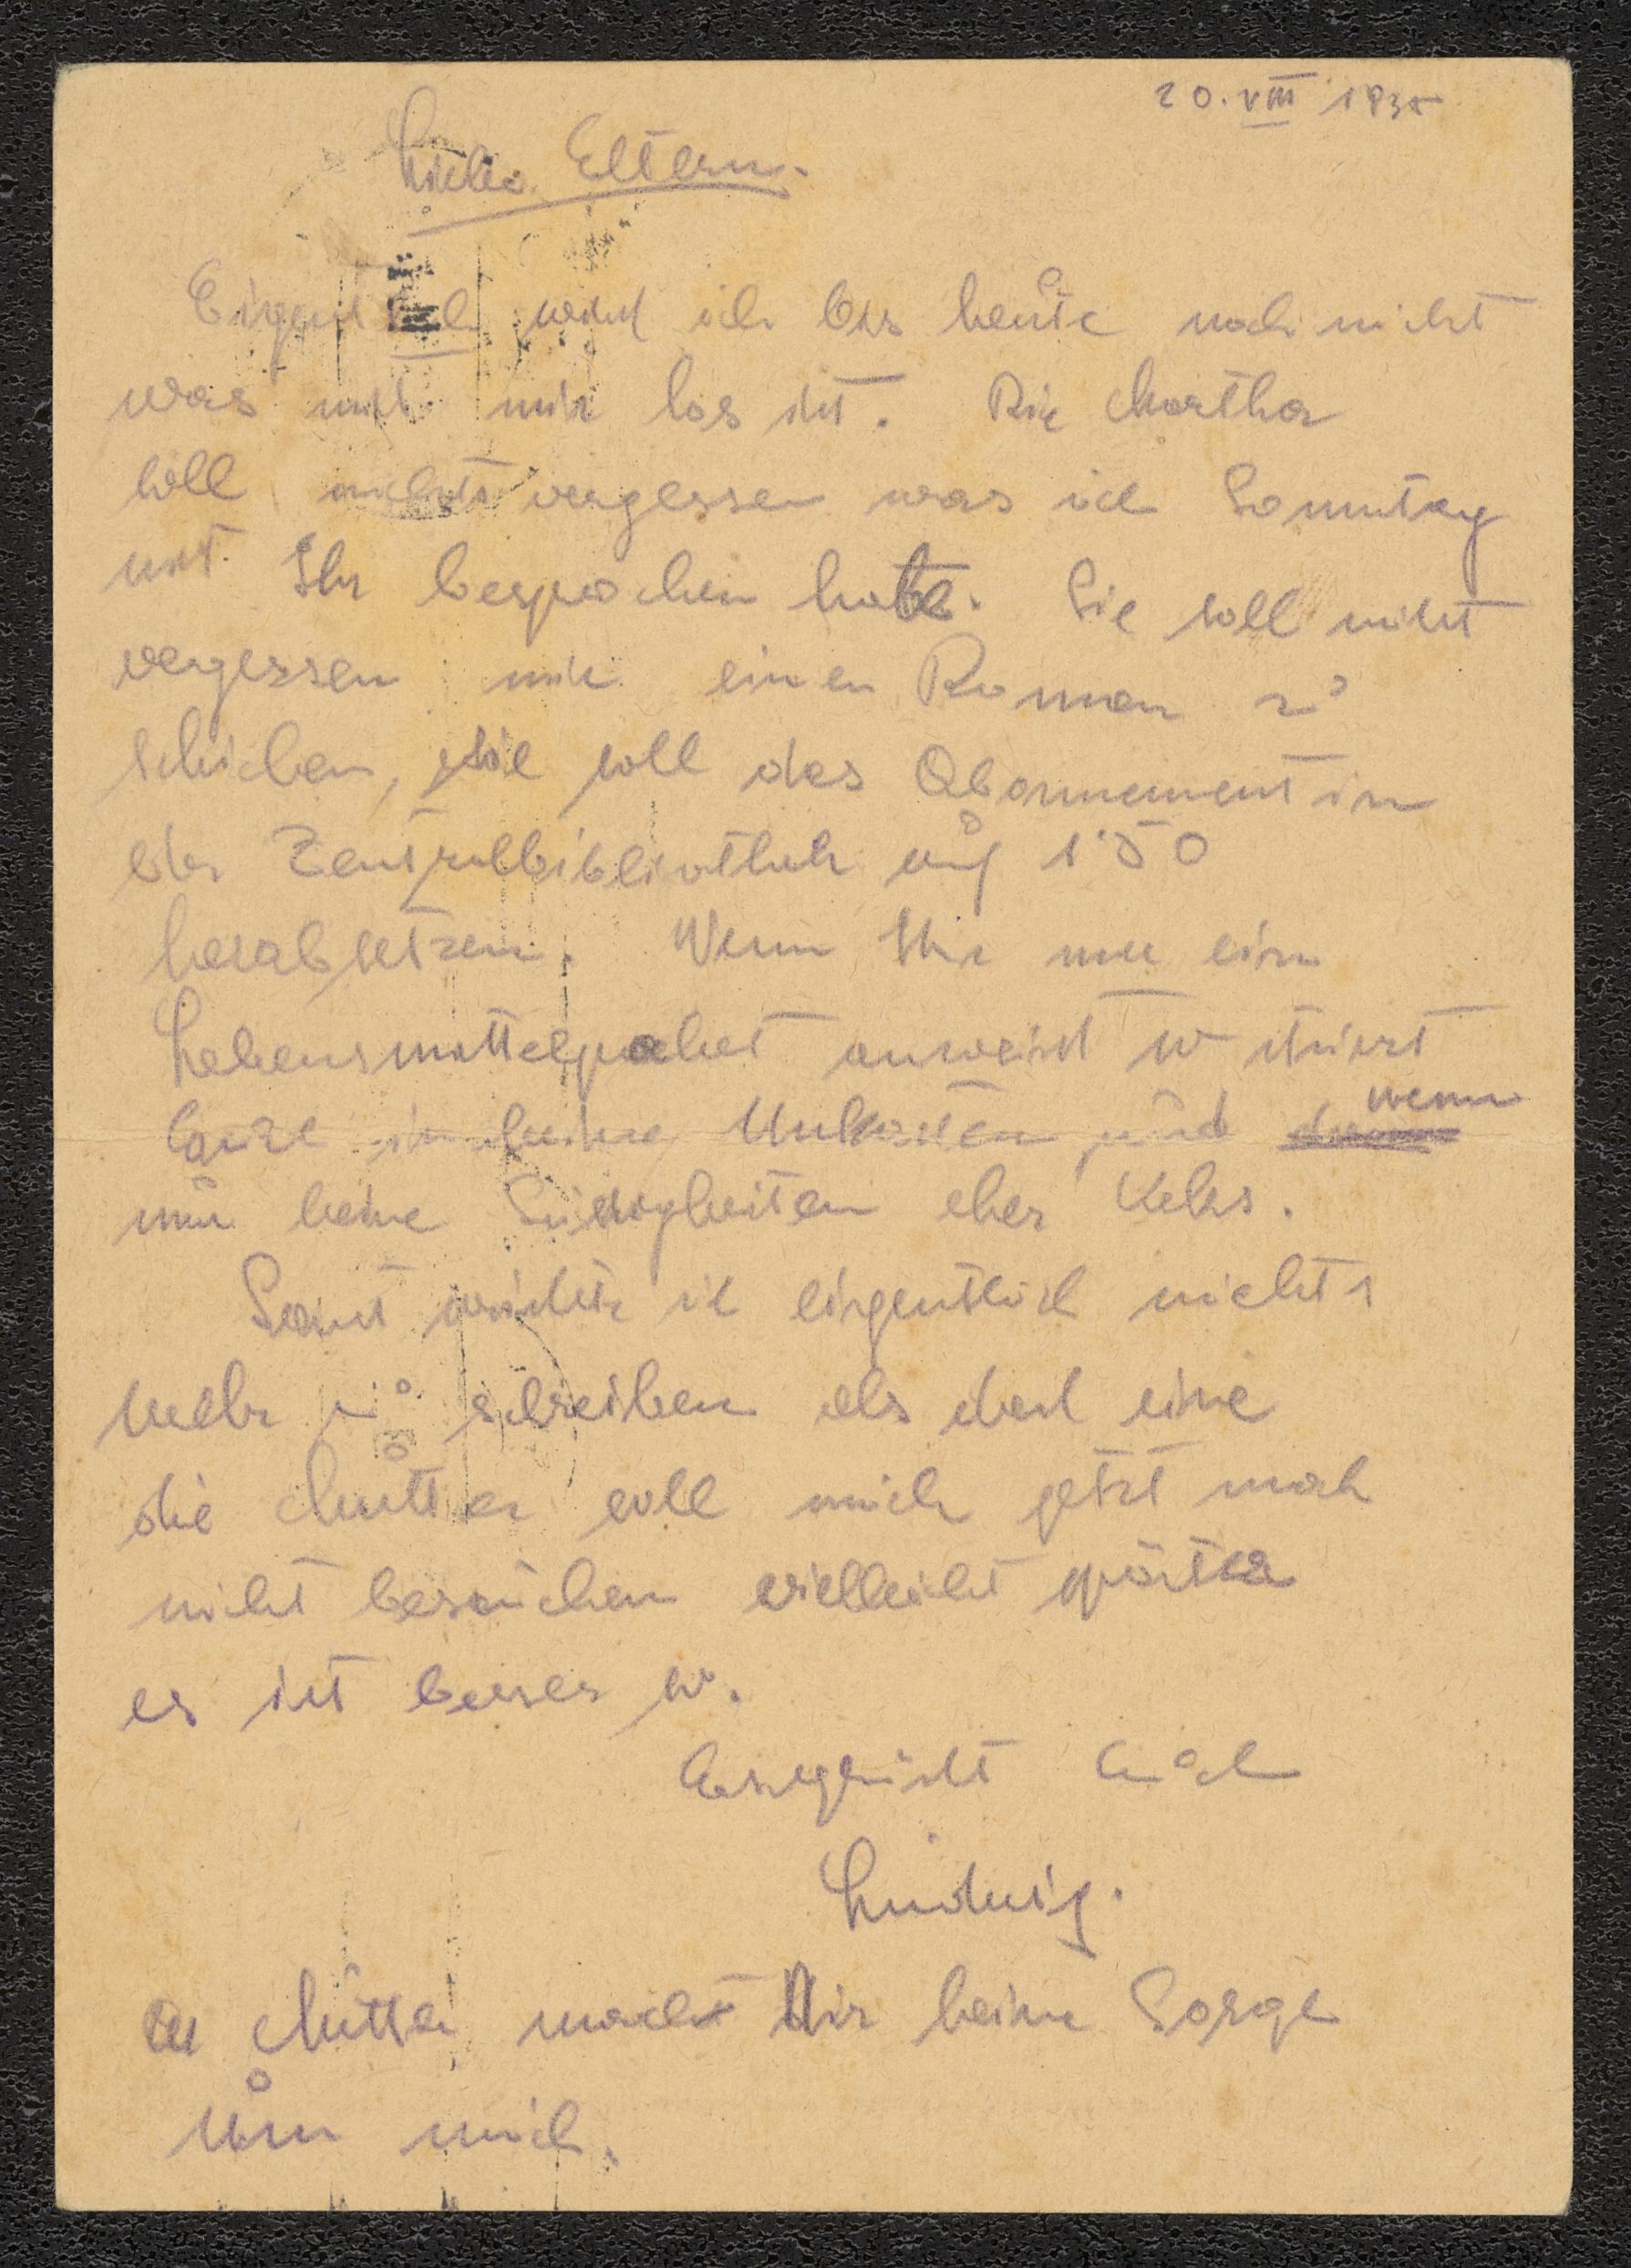 20. VIII 1935
Liebe Eltern.
Eigentlich weiß ich bis heute noch nicht
was mit mir los ist. Die Martha
soll nicht vergessen was ich Sonntag
mit Ihr besprochen habe. Sie soll nicht
vergessen mir einen Roman zu
schicken, sie soll das Abonnement in
der Zentralbibliothek auf 1'50
herabsetzen. Wenn Ihr mir ein
Lebensmittelpaket anweist so
Euch in keine Unkosten, und wenn
nur keine Süssigkeiten eher Keks.
Sonst wüsste ich eigentlich nichts
mehr zu schreiben als das eine
die Mutter soll mich jetzt noch
nicht besuchen vielleicht später
es ist besser so.
Es grüsst Euch
Ludwig.
Mutter mach Dir keine Sorge
um mich.